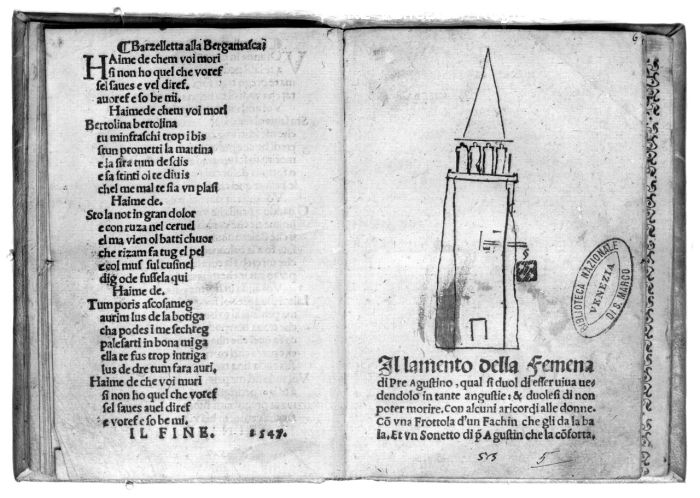 Barzelletta alla Bergamasca
HAime de chem voi mori
si non ho quel che voref
sel saues e vel diref.
auoref e so be mi.
Haime de chem voi mori
Bertolina bertolina
tu minfraschi trop i bis
stun prometti la mattina
e la sira tum desdis
e sa stinti ol te diuis
chel me mal te sia vn plasi
Haime de.
Sto la not in gran dolor
e con ruza nel ceruel
el ma vien ol batti chuor
che rizam fa tug el pel
e col mus sul cusinel
dig ode fussela qui
Haime de.
Tum poris ascosameg
aurim lus de la botiga
cha podes i me sechreg
palesarti in bona mi ga
ella te fus trop intriga
lus de dre tum fara auri.
Haime de che voi muri
si non ho quel che voref
sel saues auel diref
e voref e so be mi.
IL FINE. 1547.
6
BIBLIOTECA NAZIONALE
VENEZIA
DI S. MARCO
Il lamento della Femena
di Pre Agustino, qual si duol di esser uiua ue
dendolo in tante angustie: & duolesi di non
poter morire. Con alcuni aricordi alle donne.
Cō vna Frottola d'un Fachin che gli da la ba
la. Et vn Sonetto di p̄ Agustin che la cōforta.
5